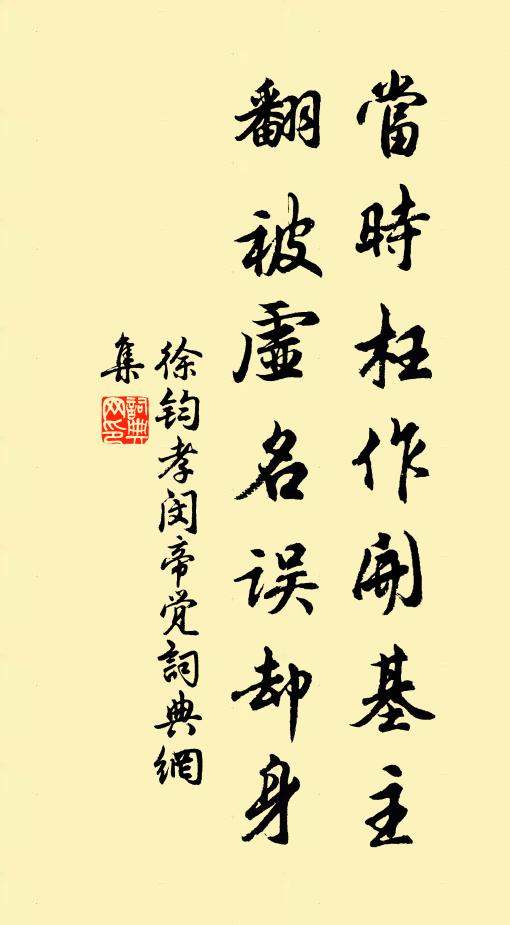 當時枉作開基主
翻被虛名误却身
徐钧孝闵帝觉詞典網
集
詞典
网印